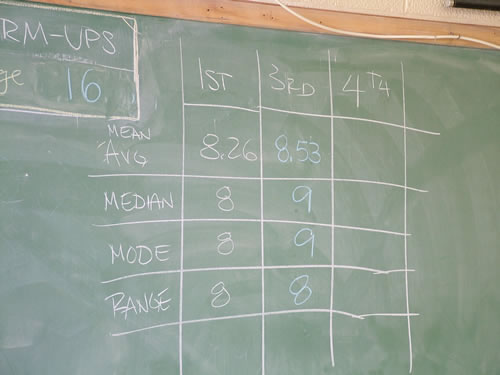 RM-UPS
ge 16
1ST 3RD 4TH
MEAN
AVG 8.26 8.53
MEDIAN 8 9
MODE 8 9
RANGE 8 8